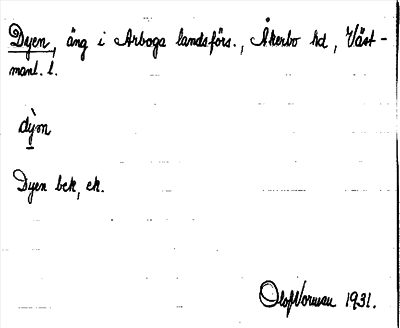 Dyen, äng i Arboga landsförs., Åkerbo hd, Väst-
manl. l.
dỳ̱n
Dyen bek, ek.
Olof Norman 1931.